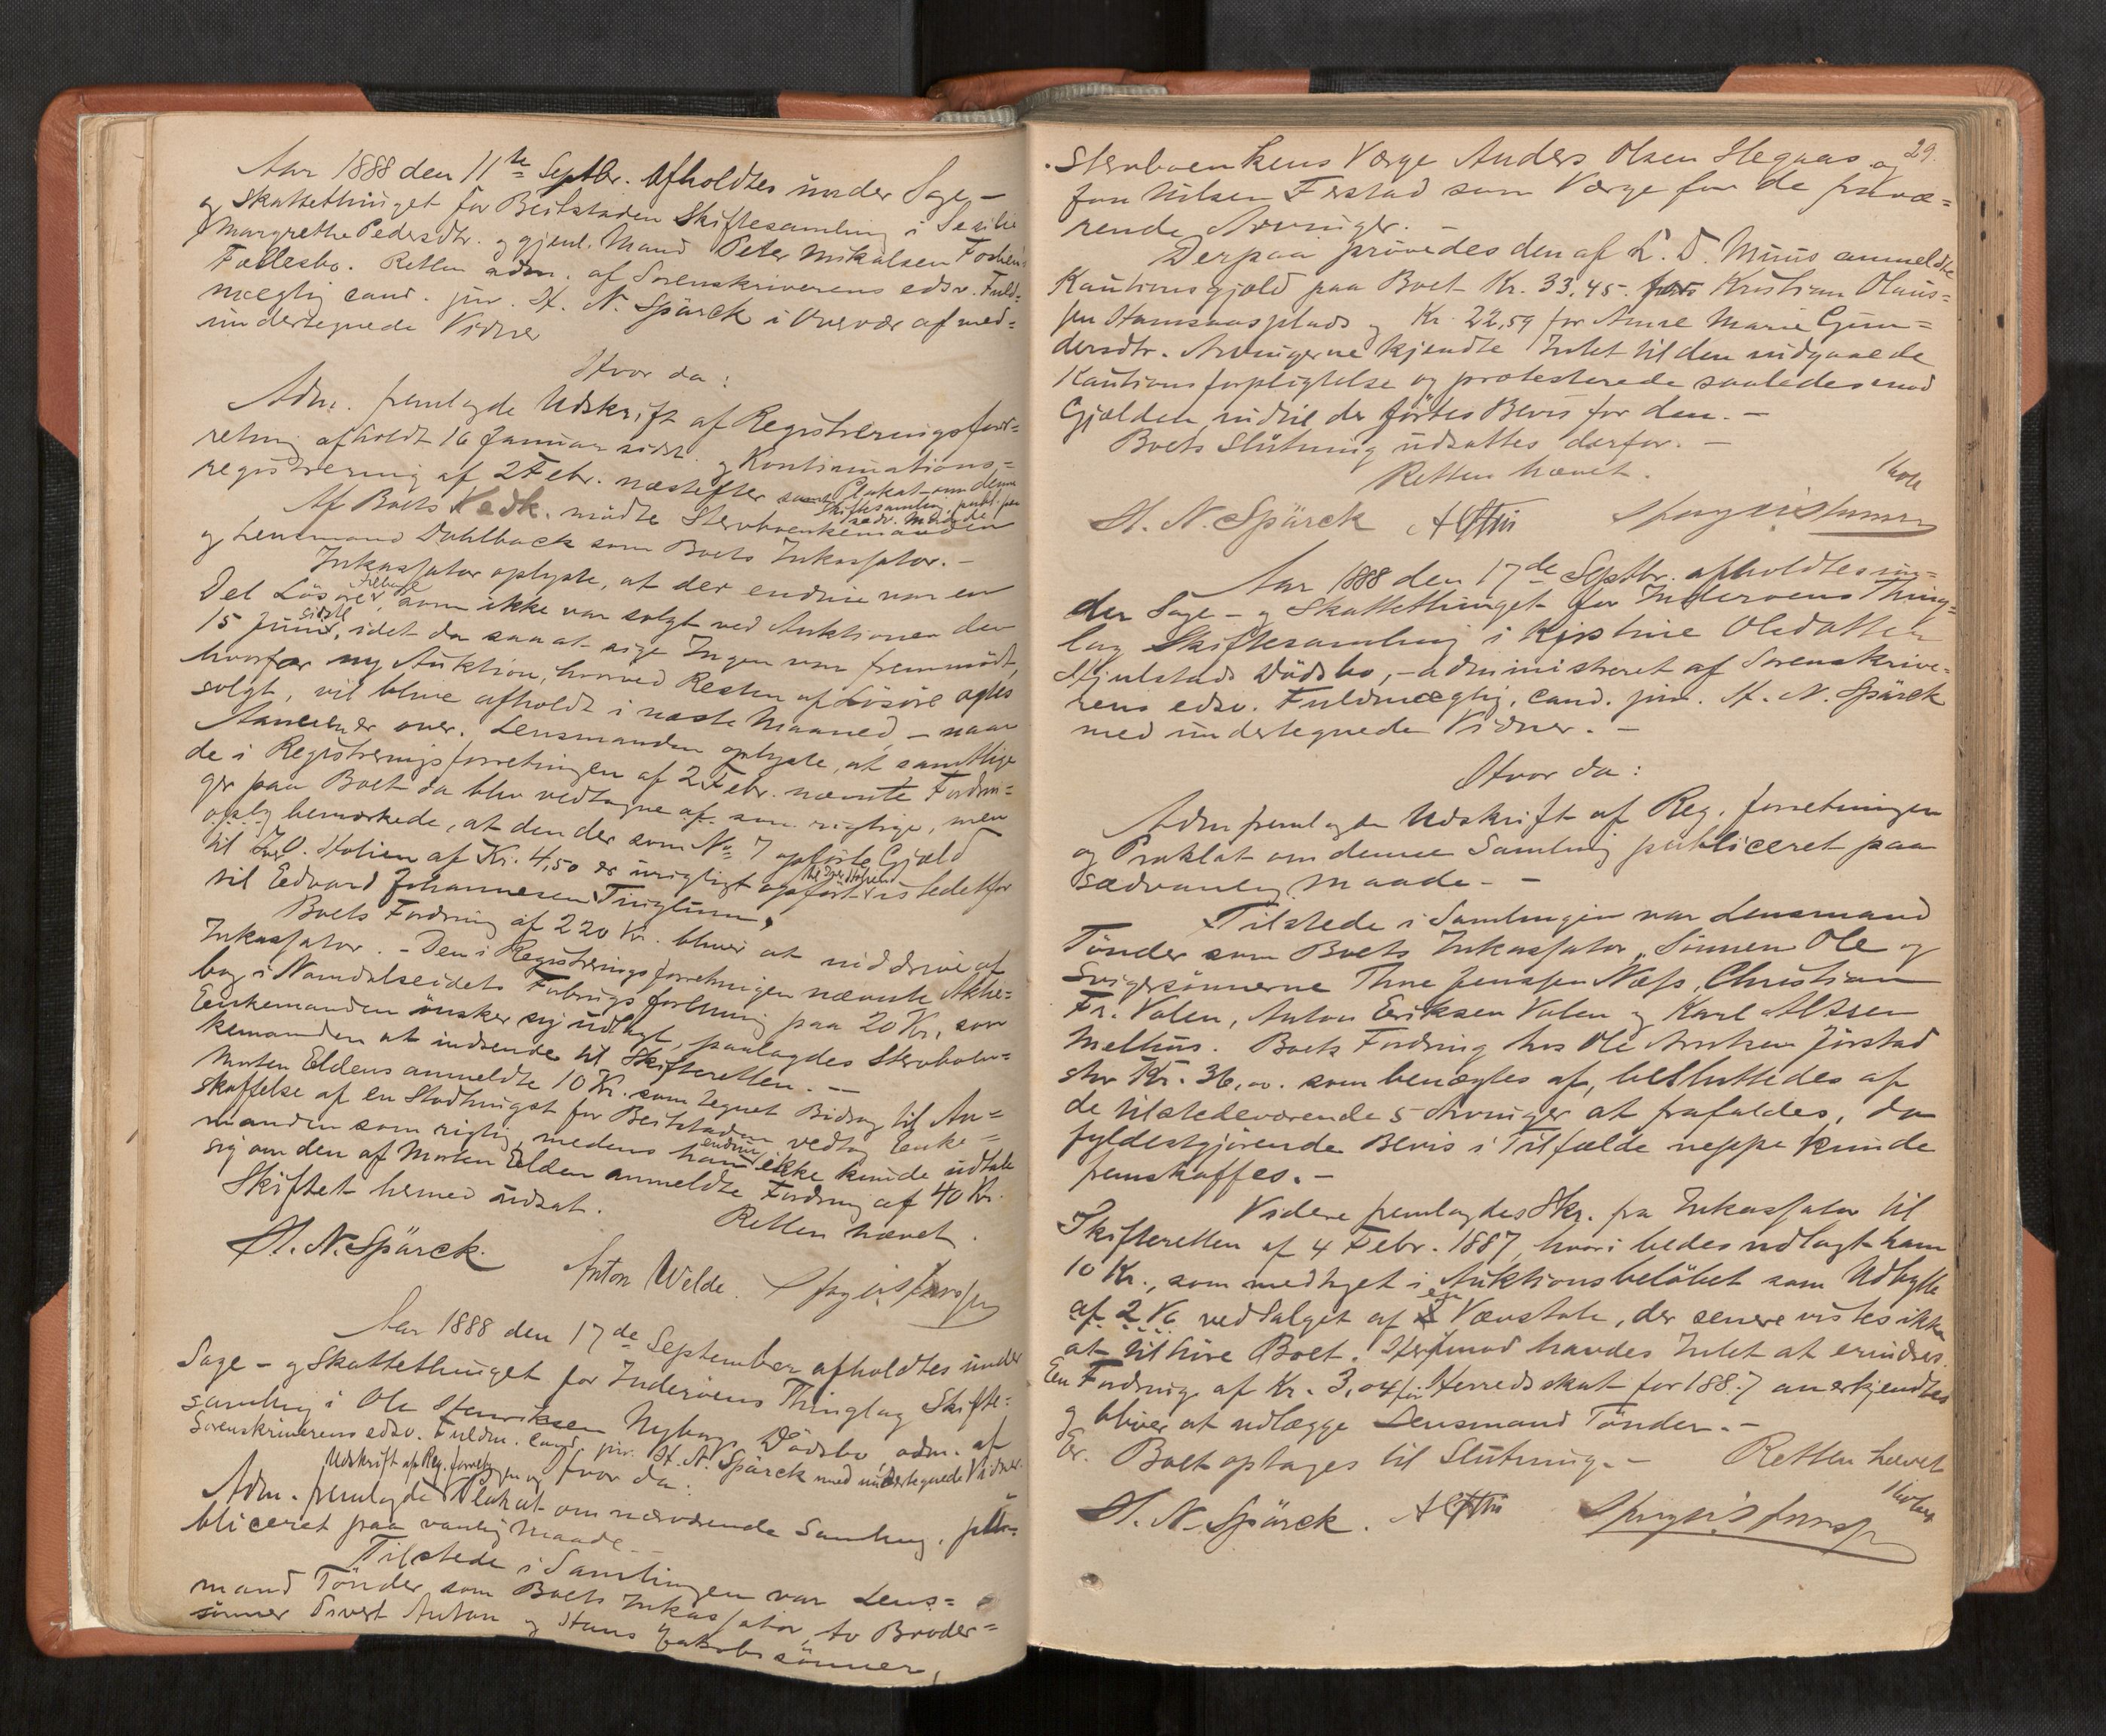 Aar 1888 den 11te Septbr. afholdtes under Sage-
og Skattethinget for Beitstaden Skiftesamling i Sesilie
Margrethe Pedersdtr. og gjenl. Mand Peter Mikalsen
Fællesbo. Retten adm. af Sorenskriverens edsv. Fuld-
mægtig cand. jur. H. N. Spärck i Overvær af med-
undertegnede Vidner
Hvor da:
Adm. fremlagde Udskrift af Registreringsforr-
retning afholdt 16 Januar sidstl. og Kontinuations-
registrering af 2 Febr. næstefter samt Plakat om denne
Skiftesamling, publ. paa
sædv. Maade.
Af Boets Vedk. mødte Stervboenkemanden
og Lensmand Dahlback som Boets Inkassator.-
Inkassator oplyste, at der endnu var en
Del Løsøre tilbage, som ikke var solgt ved Auktionen den
15 Juni sidstl., idet da saa at sige Ingen var fremmødt,
hvorfor ny Auktion, hvorved Resten af Løsøre agtes
solgt, vil blive afholdt i næste Maaned, - naar
er over. Lensmanden oplyste, at samtlige
de i Registreringsforretningen af 2 Febr. nævnte Fordrin-
ger paa Boet da blev vedtagne som rigtige, men
bemærkede, at den der som No 7 opførte Gjæld
til Holien af Kr. 4,50 er urigtigt opført istedetfor
til Edvard Johannesen
Boets Fordring af 220 Kr. bliver at inddrive af
Inkassator. - Den i Registreringsforretningen nævnte Aktie-
brev i Namdalseidets Forbrugsforening paa 20 Kr, som
Enkemanden ønsker sig udlagt, paalagdes Stervboen-
kemanden at indsende til Skifteretten. -
Morten Eldens anmeldte 10 Kr. som tegnet Bidrag til An-
skaffelse af en Stodhingst for Beitstaden vedtog Enke-
manden som rigtig, medens han endnu ikke kunde udtale
sig om den af Morten Elden anmeldte Fordring af 40 Kr.
Skiftet hermed udsat.
Retten hævet.
H. N. Spärck.
Anton Welde.
Aar 1888 den 17de September afholdtes under
Sage- og Skattethinget for Inderøens Thinglag Skifte-
samling i Ole Henriksen Nyborgs Dødsbo, adm. af
Sorenskriverens edsv. Fuldm. cand. jur. H. N. Spärck med undertegnede Vidner.
Hvor da:
Udskrift af Reg.forretningen og
Adm. fremlagde Plakat om nærværende Samling, pub-
bliceret paa vanlig Maade.-
Tilstede i Samlingen var Lens-
mand Tønder som Boets Inkassator, to Broder-
sønner Sivert Anton og Hans Jakobssønner,
29.
Stervboenkens Værge Anders Olsen Hegaas og
Jon Nilsen Ferstad som Værge for de fravæ-
rende Arvinger. -
Derpaa prøvedes den af L. D. Muus anmeldte
Kautionsgjæld paa Boet Kr. 33,45 for Kristian Olaus-
sen Hamsaasplads og Kr. 22,59 for Anne Marie Gun-
dersdtr. Arvingerne kjendte Intet til den indgaaede
Kautionsforpligtelse og protesterede saaledes mod
Gjælden indtil der førtes Bevis for den. -
Boets Slutning udsattes derfor. -
Retten hævet.
H. N. Spärck
Aar 1888 den 17de Septbr. afholdtes un-
der Sage- og Skattethinget for Inderøens Thing-
lag Skiftesamling i Kjerstine Olsdatter
Hjulstads Dødsbo, - administreret af Sorenskrive-
rens edsv. Fuldmægtig, cand. jur. H. N. Spärck
med undertegnede Vidner. -
Hvor da:
Adm fremlagde Udskrift af Reg. forretningen
og Proklat om denne Samling publiceret paa
sædvanlig Maade. -
Tilstede i Samlingen var Lensmand
Tønder som Boets Inkassator, Sønnen Ole og
Svigersønnerne Thore Jenssen Næss, Christian
Fr. Valen, Anton Eriksen Valen og Karl Olssen
Melhus. Boets Fordring hos Ole Arntsen Jørstad
stor Kr. 36,00. som benægtes af, besluttedes af
de tilstedeværende 5 Arvinger at frafaldes, da
fyldestgjørende Bevis i Tilfælde neppe kunde
fremskaffes. -
Videre fremlagdes Skr. fra Inkassator til
Skifteretten af 4 Febr. 1887, hvori bedes udlagt ham
10 Kr., som medtaget i Auktionsbeløbet som Udbytte
af 2 ved Salget af en Vævstole, der senere vistes ikke
at tilhøre Boet. Herimod havdes Intet at erindres.
En Fordring af Kr. 3,04 for Herredsskat for 1887 anerkjendtes
og bliver at udlægge Lensmand Tønder. -
Er. Boet optages til Slutning. - Retten hævet
H. N. Spärck.